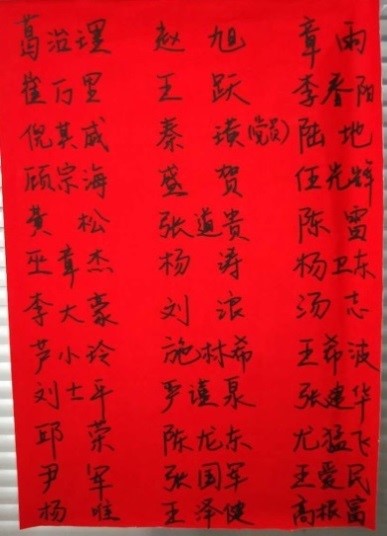 葛治理 赵旭 章雨
崔万里 王跃 李春阳
倪其威 秦璜(党员) 陆地
顾宗海 盛贺 任光辉
黄松 张道贵 陈雷
巫章杰 杨涛 杨卫东
李大豪 刘浪 汤志
芦小玲 施林希 王希波
刘士平 严谨泉 张建华
邱荣 陈龙东 尤猛飞
尹军 张国军 王爱民
杨唯 王泽健 高根富